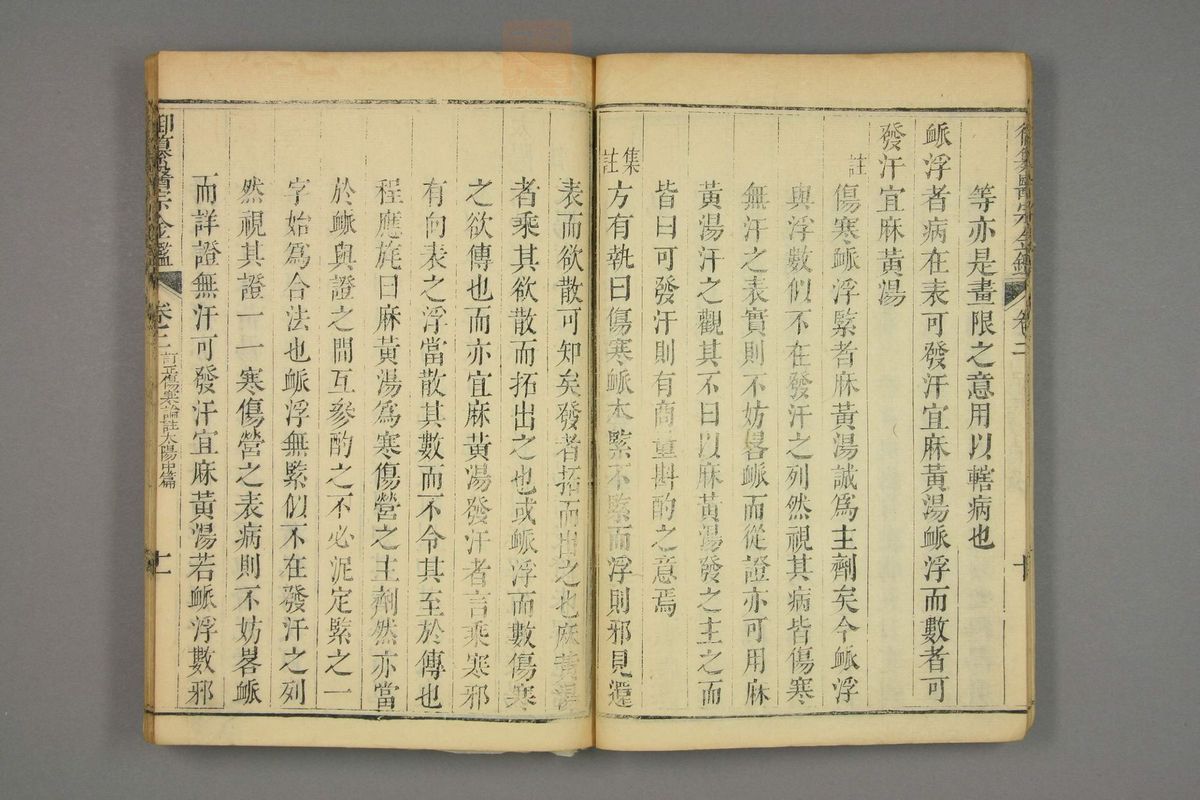 御纂醫宗金鑑 卷二 十
等亦是畫限之意用以轄病也
脈浮者病在表可發汗宜麻黃湯脈浮而數者可
發汗宜麻黃湯
註傷寒脈浮緊者麻黃湯誠為主劑矣今脈浮
與浮數似不在發汗之列然視其病皆傷寒
無汗之表實則不妨畧脈而從證亦可用麻
黃湯汗之觀其不曰以麻黃湯發之主之而
皆曰可發汗則有商量斟酌之意焉
集註方有執曰傷寒脈本緊不緊而浮則邪見還
表而欲散可知矣發者拓而出之也麻黃湯
者乘其欲散而拓出之也或脈浮而數傷寒
之欲傳也而亦宜麻黃湯發汗者言乘寒邪
有向表之浮當散其數而不令其至於傳也
程應旄曰麻黃湯為寒傷營之主劑然亦當
於脈與證之間互參酌之不必泥定緊之一
字始為合法也脈浮無緊似不在發汗之列
然視其證一一寒傷營之表病則不妨畧脈
而詳證無汗可發汗宜麻黃湯若脈浮數邪
御纂醫宗金鑑 卷二 訂正傷寒論註太陽中篇 十一